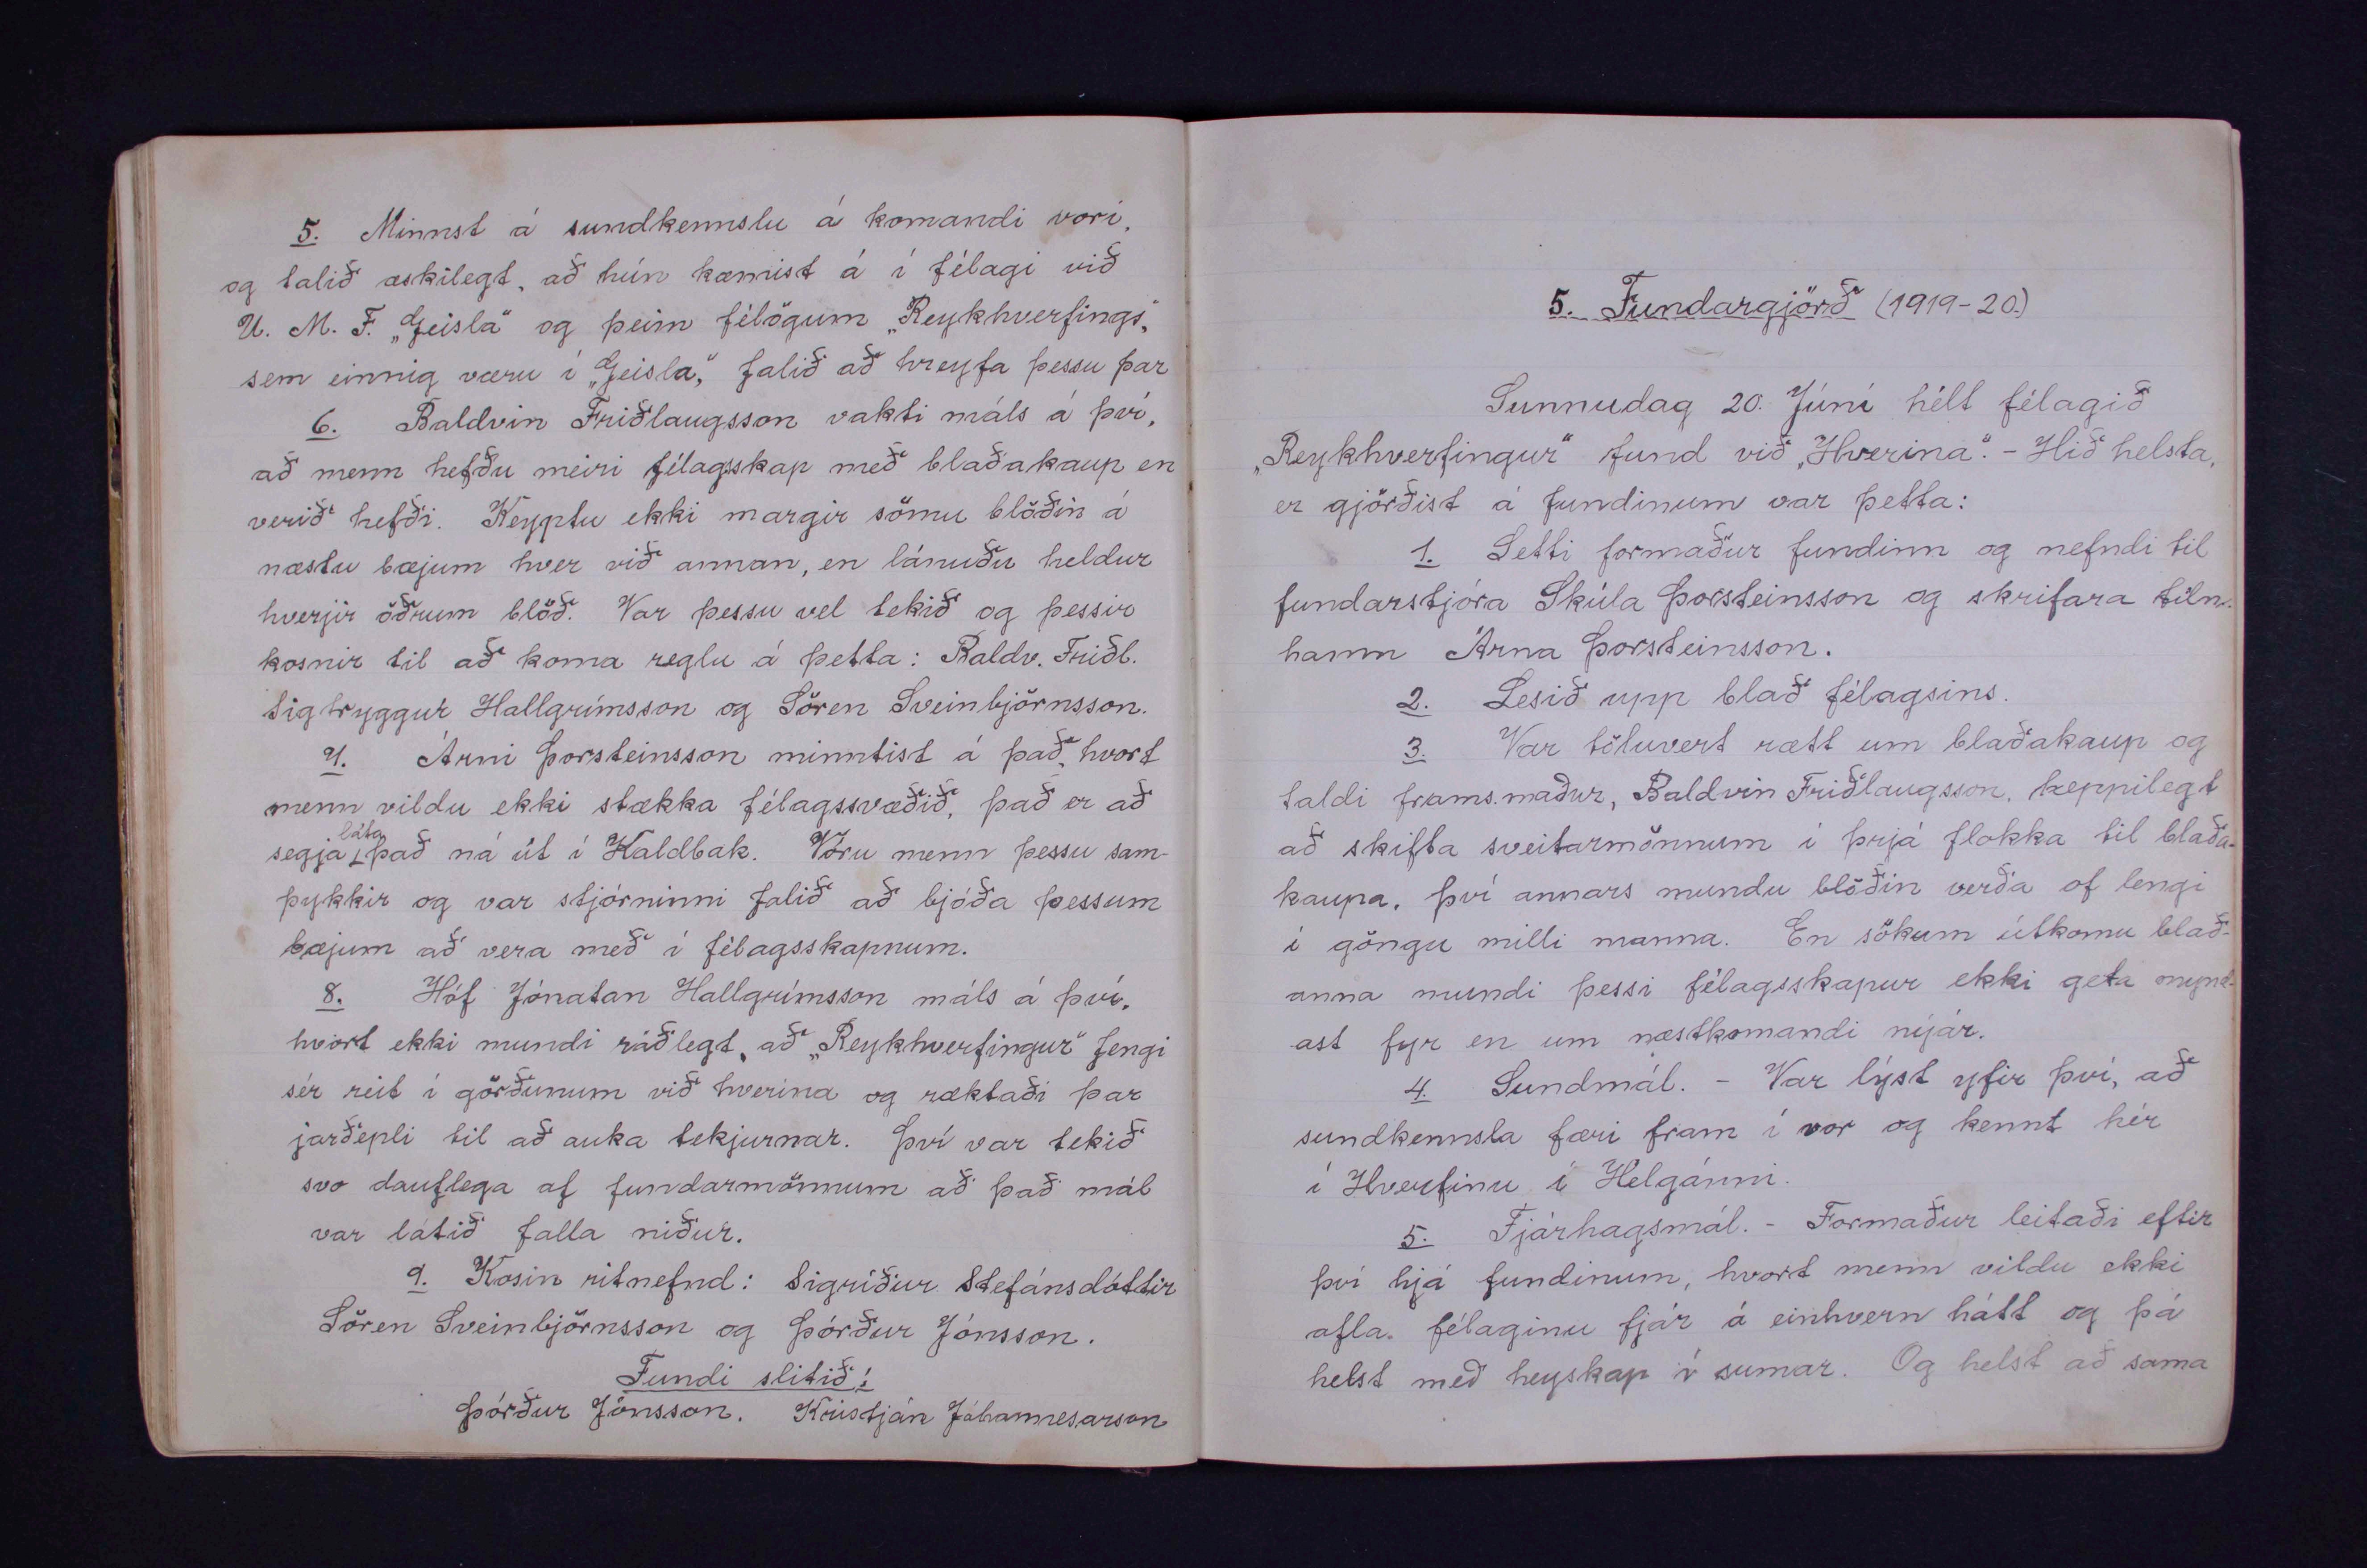 5. Minnst á sundkennslu á komandi vori,
og talið æskilegt, að hún kæmist á í félagi við
U. M. F. „Geisla" og þeim félögum „Reykhverfings",
sem einnig væru í „Geisla", falið að hreyfa þessu þar
6. Baldvin Friðlaugsson vakti máls á því,
að menn hefðu meiri félagsskap með blaðakaup en
verið hefði. Keyptu ekki margir sömu blöðin á
næstu bæjum hver við annan, en lánuðu heldur
hverjir öðrum blöð. Var þessu vel tekið og þessir
kosnir til að koma reglu á þetta: Baldv. Friðl.
Sigtryggur Hallgrímsson og Sören Sveinbjörnsson.
7. Árni Þorsteinsson minntist á það, hvort
menn vildu ekki stækka félagssvæðið, það er að
segja láta það ná út í Kaldbak. Vóru menn þessu sam-
þykkir og var stjórninni falið að bjóða þessum
bæjum að vera með í félagsskapnum.
8. Hóf Jónatan Hallgrímsson máls á því,
hvort ekki mundi ráðlegt, að „Reykhverfingur" fengi
sér reit í görðunum við hverina og ræktaði þar
jarðepli til að auka tekjurnar. Því var tekið
svo dauflega af fundarmönnum að það mál
var látið falla niður.
9. Kosin ritnefnd: Sigríður Stefánsdóttir
Sören Sveinbjörnsson og Þórður Jónsson.
Fundi slitið!
Þórður Jónsson. Kristján Jóhannesarson
5. Fundargjörð (1919-20.)
Sunnudag 20. Júní hélt félagið
„Reykhverfingur" fund við „Hverina". - Hið helsta,
er gjörðist á fundinum var þetta:
1. Setti formaður fundinn og nefndi til
fundarstjóra Skúla Þorsteinsson og skrifara tiln.
hann Árna Þorsteinsson.
2. Lesið upp blað félagsins.
3. Var töluvert rætt um blaðakaup og
taldi frams.maður, Baldvin Friðlaugsson, heppilegt
að skifta sveitarmönnum í þrjá flokka til blaða-
kaupa, því annars mundu blöðin verða of lengi
í göngu milli manna. En sökum útkomu blað-
anna mundi þessi félagsskapur ekki geta mynd-
ast fyr en um næstkomandi nýjár.
4. Sundmál. - Var lýst yfir því, að
sundkennsla færi fram í vor og kennt hér
í Hverfinu í Helgánni.
5. Fjárhagsmál. - Formaður leitaði eftir
því hjá fundinum, hvort menn vildu ekki
afla félaginu fjár á einhvern hátt og þá
helst með heyskap í sumar. Og helst að sama